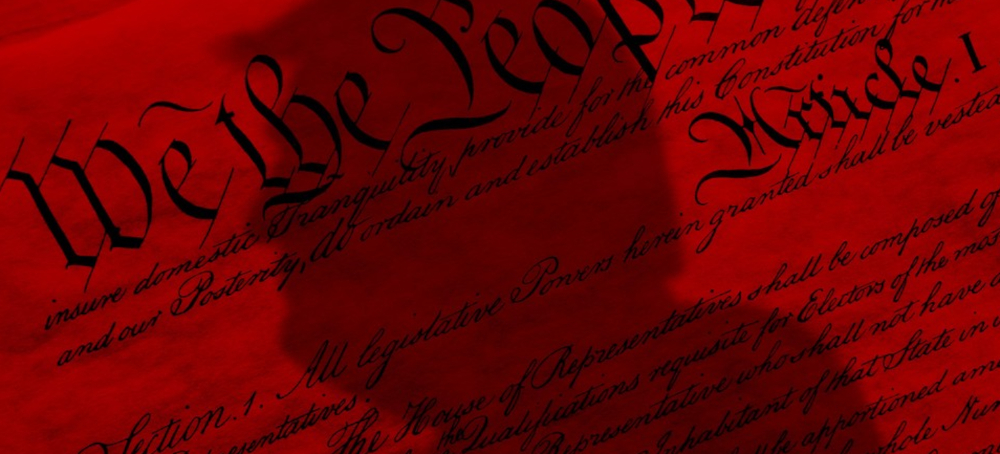 We the People
insure domestic Tranquility, provide for the common defen
and our Posterity, do ordain and establish this Constitution for
Article. I
Section. 1. All legislative Powers herein granted shall be vested
Representatives.
The House of Representatives shall be composed of
the Qualifications requisite for Electors of the most
Representative who shall not have
Inhabitant of that State in
be apportioned
whole Num